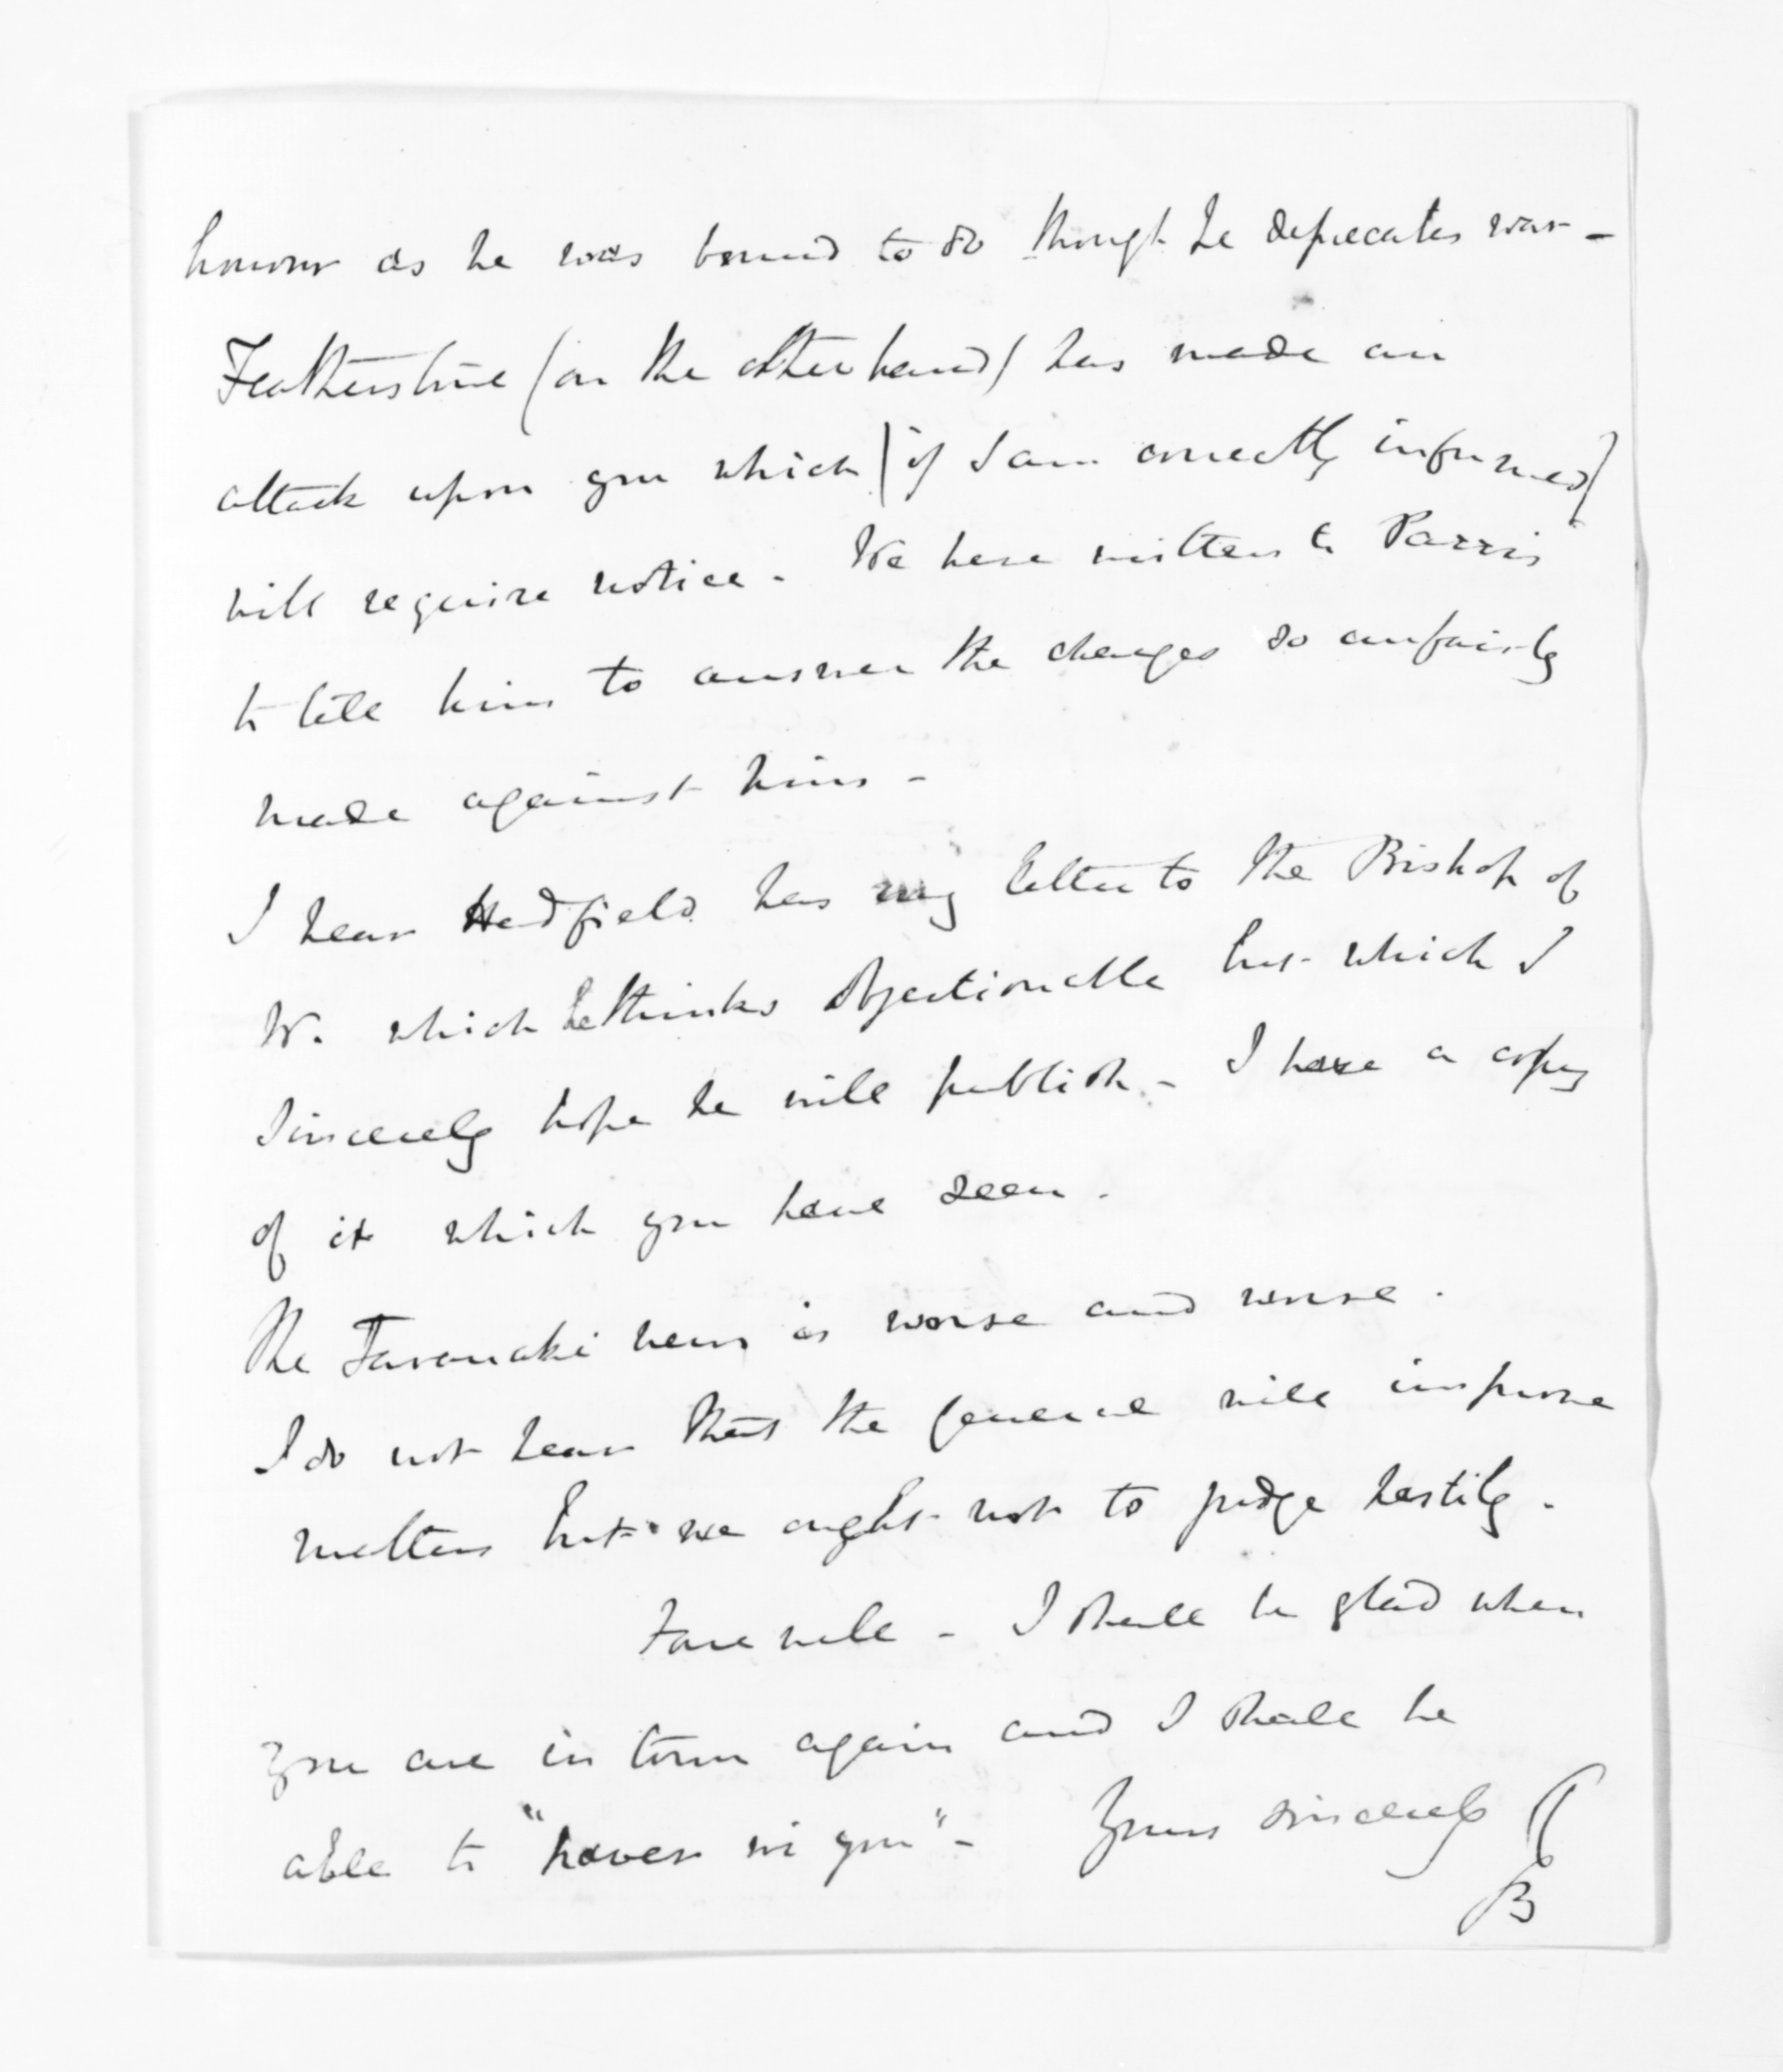 honour as he was bound to do though he deprecates war -
Featherstone (on the other hand) has made an
attack upon you which (if I am correctly informed)
will require notice. We have written to Parris
to tell him to answer the charges so unfairly
made against him -
I hear Hadfield has my letter to the Bishop of
W. which he thinks objectionable but which I
sincerely hope he will publish - I have a copy
of it which you have seen.
The Taranaki news is worse and worse.
I do not hear that the General will improve
matters but we ought not to judge hastily.
Farewell - I shall be glad when
you are in town again and I shall be
able to " in you" - Yours sincerely
B